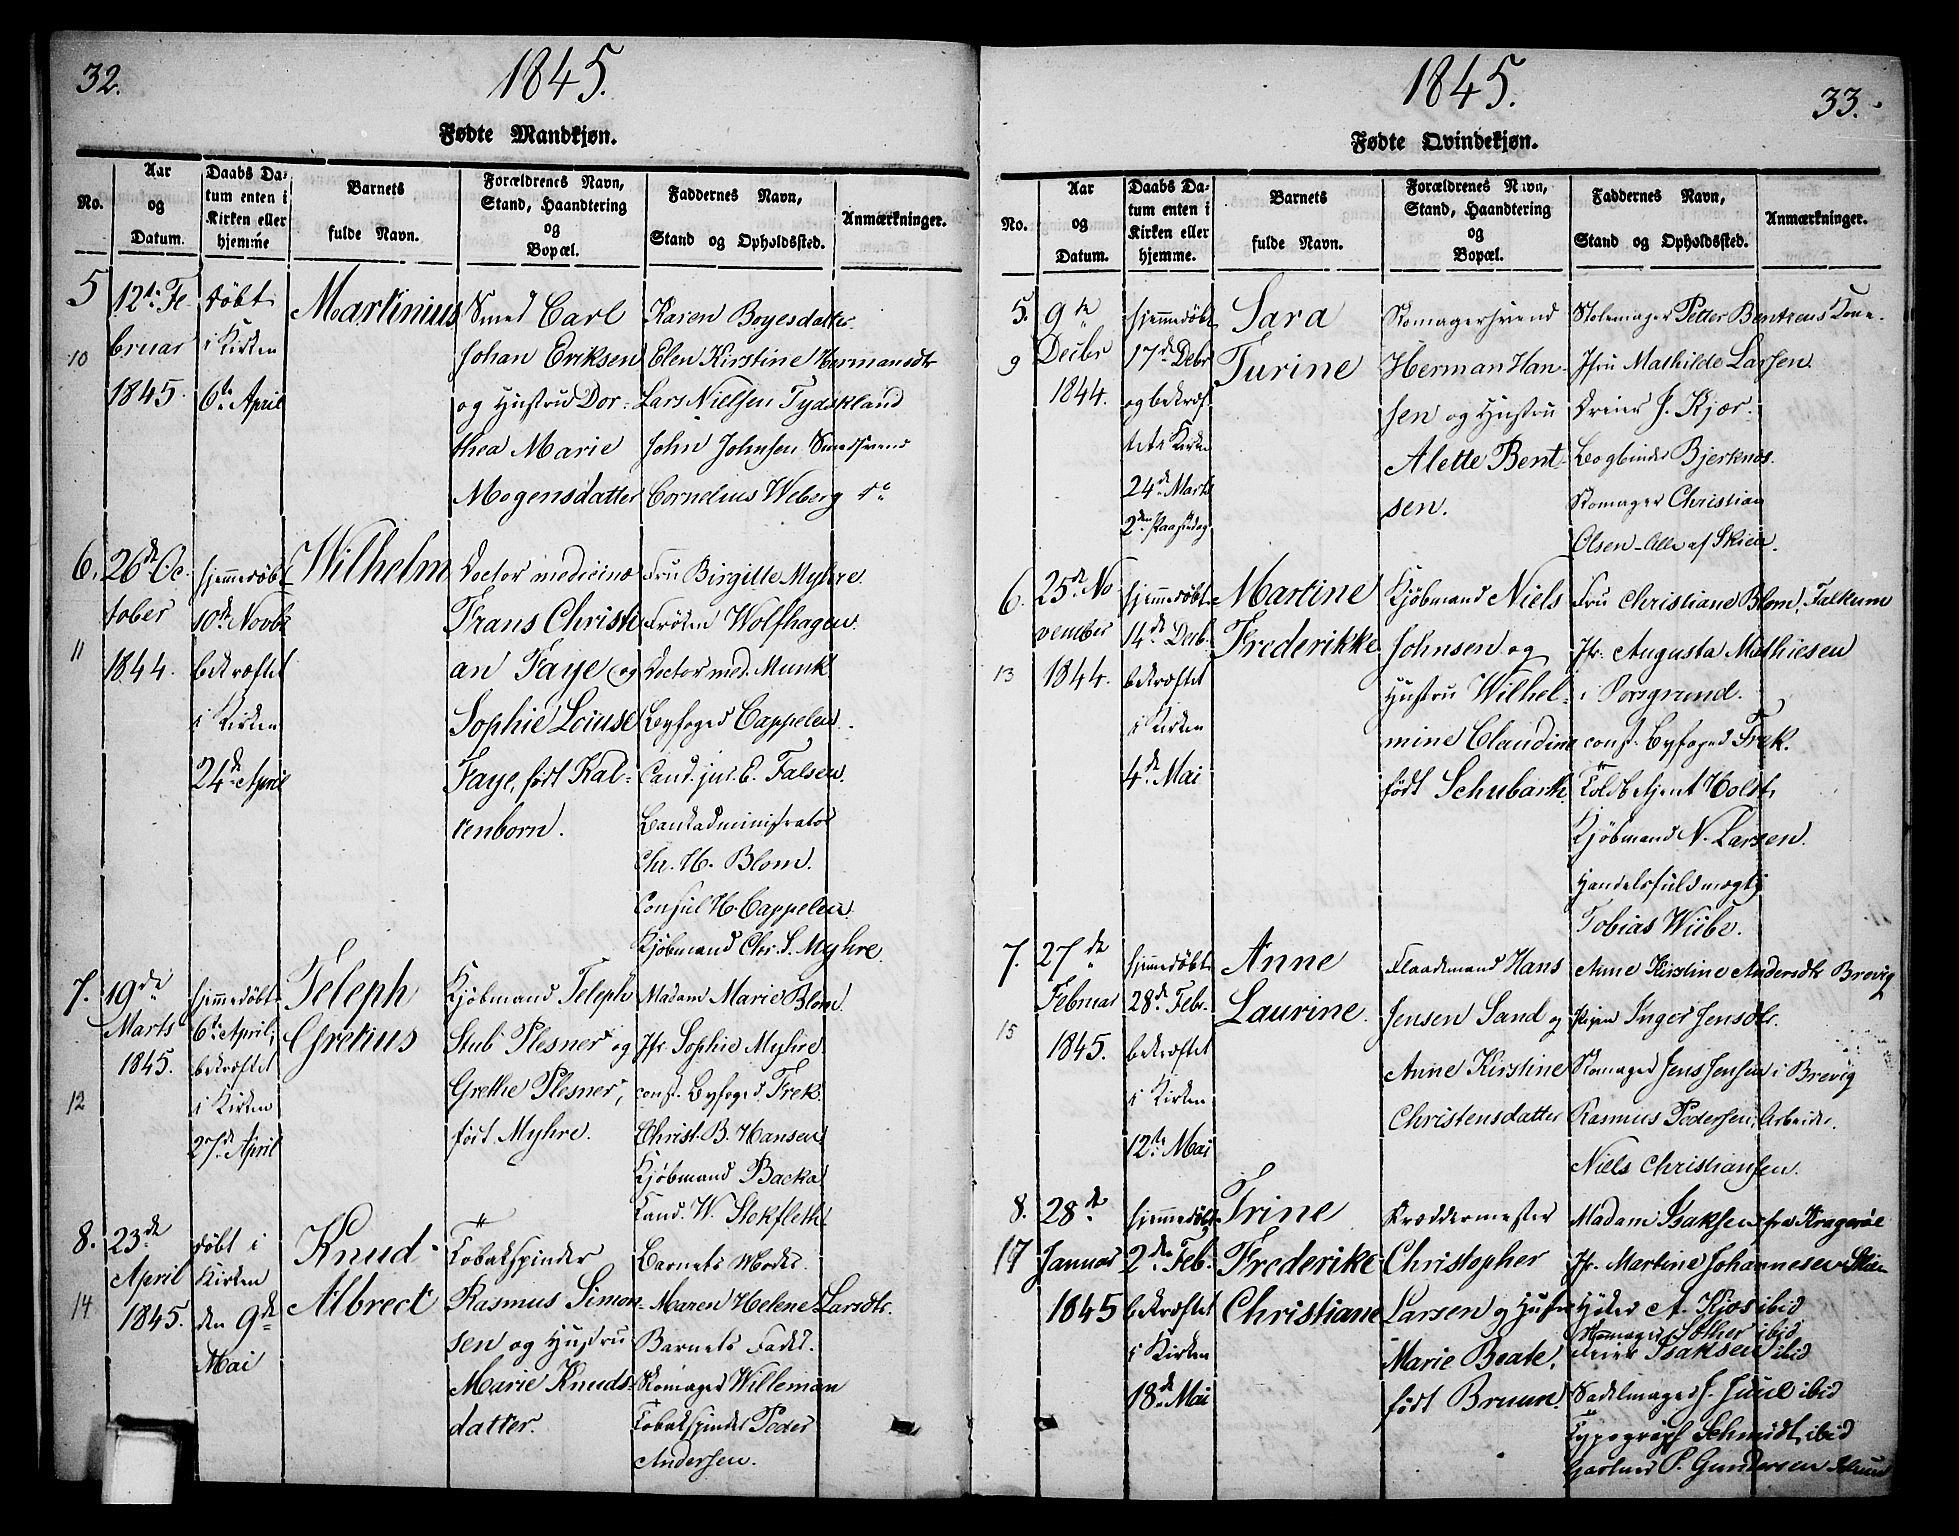 32.
1845.
Fødte Mandkjøn.
No.
Aar
og
Datum.
Daabs Da-
tum enten i
Kirken eller
hjemme
Barnets
fulde Navn.
Forældrenes Navn,
Stand, Haandtering
og
Bopæl.
Faddernes Navn,
Stand og Opholdssted.
Anmærkninger.
5
10
12te Fe
bruar
1845.
døbt
i Kirken
6te April
Martinius
Smed Carl
Johan Eriksen
og Hustrud Dor-
thea Marie
Mogensdatter
Karen Boyesdatter
Elen Kirstine Hermansdtr
Lars Nielsen Tydskland
John Johnsen Smedsvend
Cornelius Weberg do
6.
11
26de Oc
tober
1844.
hjemmedøbt
10de Novbr
bekræftet
i Kirken
24de April
Wilhelm
Doctor medicinæ
Frans Christi
an Faye og
Sophie Loiuse
Faye, født Kal-
tenborn.
Fru Birgitte Myhre.
Frøken Wolfhagen.
Doctor med. Munk
Byfoged Cappelen.
Cand. jur. E. Falsen.
Bankadministrator
Chr. H. Blom.
Consul H. Cappelen.
Kjøbmand Chr. S. Myhre.
7.
12
19de
Marts
1845.
hjemmedøbt
6te April;
bekræftet
i Kirken
27de April
Teleph
Gretius
Kjøbmand Teleph
Stub Plesner og
Grethe Plesner,
født Myhre.
Madam Marie Blom.
Jfr Sophie Myhre.
const. Byfoged Frek.
Christ. B. Hansen
Kjøbmand Backa
Kand. W. Stokfleth
8.
14
23de
April
1845.
døbt i
Kirken
den 9de
Mai
Knud
Albrect
Tobakspinder
Rasmus Simon
sen og Hustru
Marie Knuds-
datter.
Barnets Moder.
Maren Helene Larsdtr.
Barnets Fader.
Skomager Willeman
Tobakspinder Peder
Andersen.
1845.
33.
Fødte Qvindekjøn.
No.
Aar
og
Datum.
Daabs Da-
tum enten i
Kirken eller
hjemme.
Barnets
fulde Navn.
Forældrenes Navn,
Stand, Haandtering
og
Bopæl.
Faddernes Navn,
Stand og Opholdssted.
Anmærkninger.
5.
9
9de
Decbr
1844.
hjemmedøbt
17de Debr
og bekræf
tet i Kirken
24de Marts
2den Paaskedag
Sara
Turine
Skomagersvend
Herman Han-
sen og Hustru
Alette Bent-
sen.
Stolemager Petter Bentzens Kone.
Jfru Mathilde Larsen.
Dreier J. Kjær.
Bogbinder Bjerknes.
Skomager Christian
Olsen - Alle af Skien.
6.
13
25de No
vember
1844.
hjemmedøbt
14de Decb.
bekræftet
i Kirken
4de Mai
Martine
Frederikke
Kjøbmand Niels
Johnsen og
Hustru Wilhel-
mine Claudine
født Schubarth.
Fru Christiane Blom, Falkum
Jfr. Augusta Mathiesen
i Porsgrund.
const. Byfoged Frek.
Toldbetjent Holst,
Kjøbmand N. Larsen.
Handelsfuldmægtig
Tobias Wiibe.
7.
15
27de
Februar
1845.
hjemmedøbt
28de Febr.
bekræftet
i Kirken
12te Mai
Anne
Laurine.
Flaademand Hans
Jensen Sand og
Anne Kirstine
Christensdatter
Anne Kirstine Andersdtr Brevig
Pigen Inger Jensdtr.
Skomager Jens Jensen i Brevig
Rasmus Pedersen, Arbeider.
Niels Christiansen.
8.
17
28de
Januar
1845
hjemmedøbt
2den Feb.
bekræftet
i Kirken
18de Mai
Trine
Frederike
Christiane
Skræddermester
Christopher
Larsen og Hustru
Marie Beate,
født Bruun.
Madam Isaksen fra Kragerøe
Jfr. Martine Johannesen Skien
A. Kjos ibid
Skomager Sother ibid
Isaksen ibid
Sadelmager J. Juul ibid
Typograph Schmidt, ibid
Gartner P. Gundersen